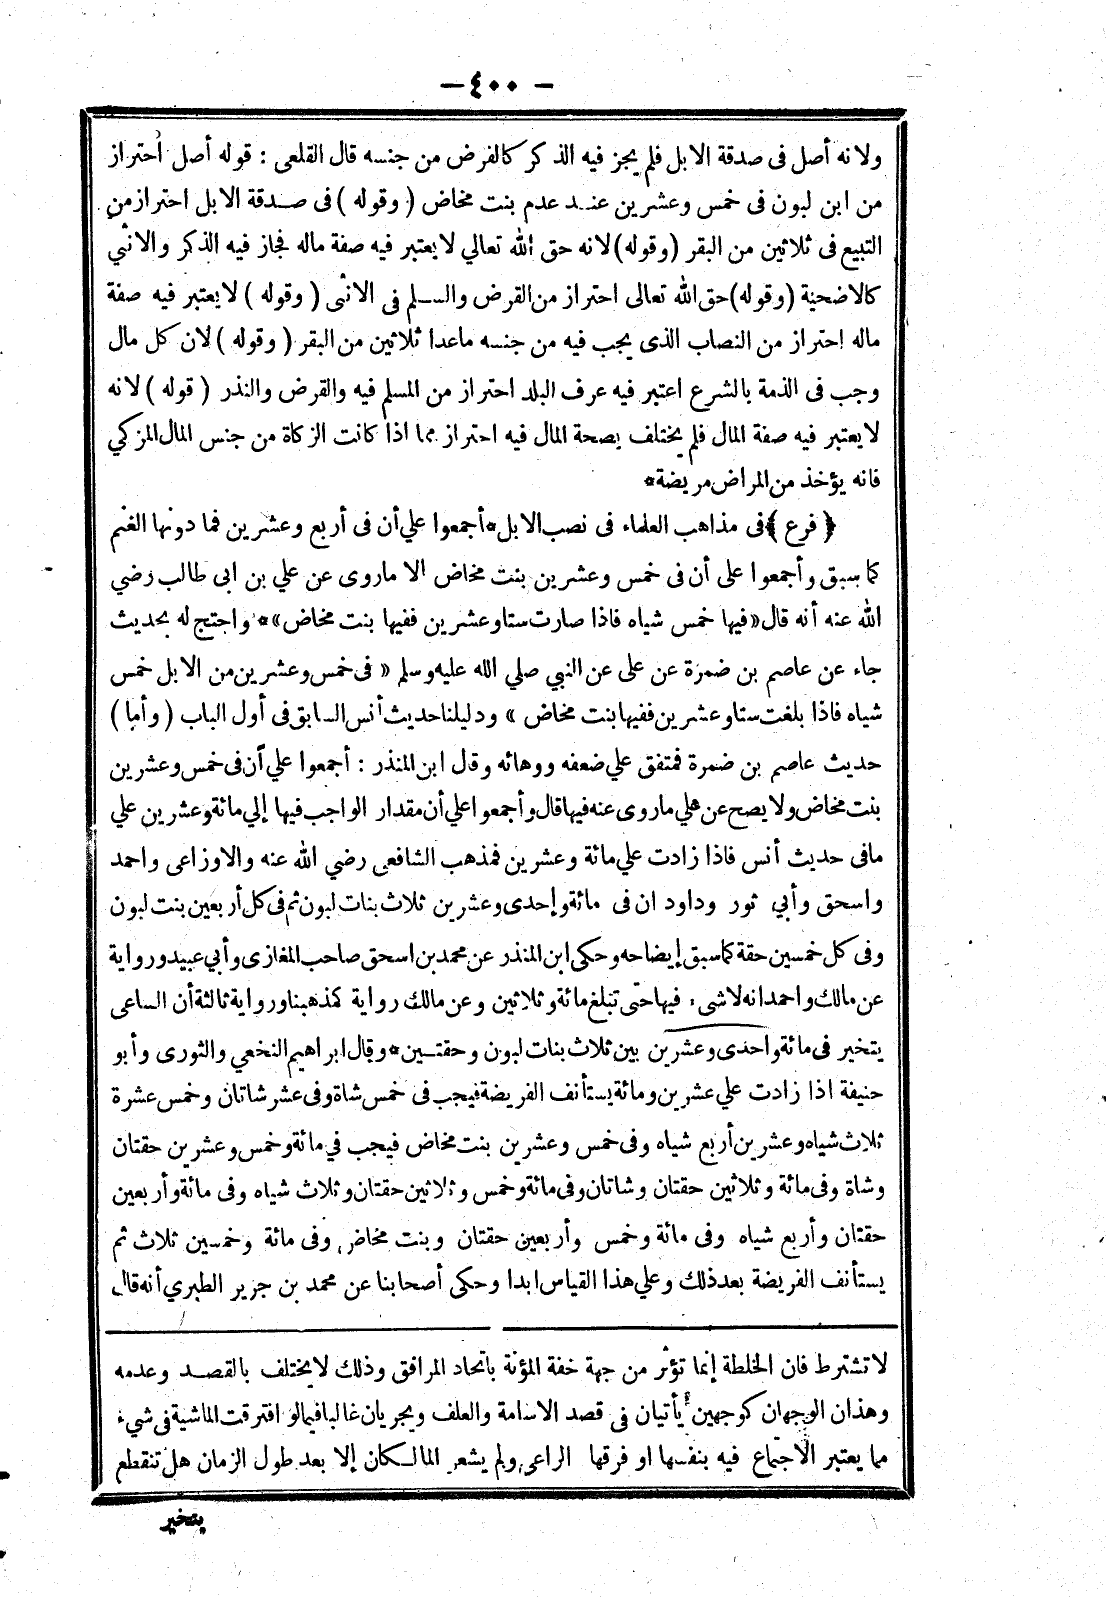 — ٤٠٠ —
ولانه أصل فى صدقة الابل فلم يجز فيه الذكر كالفرض من جنسه قال القلعى : قوله أصل احتراز
من ابن لبون فى خمس وعشرين عند عدم بنت مخاض ( وقوله ) فى صدقة الابل احتراز من
التبيع فى ثلاثين من البقر ( وقوله ) لانه حق الله تعالي لا يعتبر فيه صفة ماله فجاز فيه الذكر والانثي
كالاضحية ( وقوله ) حق الله تعالى احتراز من القرض والسلم فى الانثى ( وقوله ) لا يعتبر فيه صفة
ماله احتراز من النصاب الذى يجب فيه من جنسه ماعدا ثلاثين من البقر ( وقوله ) لان كل مال
وجب فى الذمة بالشرع اعتبر فيه عرف البلد احتراز من المسلم فيه والقرض والنذر ( قوله ) لانه
لا يعتبر فيه صفة المال فلم يختلف بصحة المال فيه احتراز مما اذا كانت الزكاة من جنس المال المزكي
فانه يؤخذ من المراض مريضة*
﴿ فرع ﴾ فى مذاهب العلماء فى نصب الابل* أجمعوا علي أن فى أربع وعشرين فما دونها الغنم
كما سبق وأجمعوا على أن فى خمس وعشرين بنت مخاض الا ماروى عن علي بن ابى طالب رضي
الله عنه أنه قال « فيها خمس شياه فاذا صارت ستا وعشرين ففيها بنت مخاض »* واحتج له بحديث
جاء عن عاصم بن ضمرة عن على عن النبي صلي الله عليه وسلم « فى خمس وعشرين من الابل خمس
شياه فاذا بلغت ستا وعشرين ففيها بنت مخاض » ودليلنا حديث أنس السابق فى أول الباب ( وأما )
حديث عاصم بن ضمرة فمتفق علي ضعفه ووهائه وقل ابن المنذر : أجمعوا علي أن فى خمس وعشرين
بنت مخاض ولا يصح عن علي ماروى عنه فيها قال وأجمعوا علي أن مقدار الواجب فيها إلي مائة وعشرين علي
مافى حديث أنس فاذا زادت علي مائة وعشرين فمذهب الشافعى رضي الله عنه والاوزاعى واحمد
واسحق وأبي ثور وداود ان فى مائة وإحدى وعشرين ثلاث بنات لبون ثم فى كل أربعين بنت لبون
وفى كل خمسين حقة كما سبق إيضاحه وحكى ابن المنذر عن محمد بن اسحق صاحب المغازى وأبي عبيد ورواية
عن مالك واحمد انه لاشىء فيها حتى تبلغ مائة وثلاثين وعن مالك رواية كمذهبنا ورواية ثالثة أن الساعى
يتخير فى مائة واحدى وعشرين بين ثلاث بنات لبون وحقتين* وقال ابراهيم النخعي والثورى وأبو
حنيفة اذا زادت علي عشرين ومائة يستأنف الفريضة فيجب فى خمس شاة وفى عشر شاتان وخمس عشرة
ثلاث شياه وعشرين أربع شياه وفى خمس وعشرين بنت مخاض فيجب في مائة وخمس وعشرين حقتان
وشاة وفى مائة وثلاثين حقتان وشاتان وفى مائة وخمس وثلاثين حقتان وثلاث شياه وفى مائة وأربعين
حقتان وأربع شياه وفى مائة وخمس وأربعين حقتان وبنت مخاض وفى مائة وخمسين ثلاث ثم
يستأنف الفريضة بعد ذلك وعلي هذا القياس ابدا وحكى أصحابنا عن محمد بن جرير الطبري أنه قال
لا تشترط فان الخلطة إنما تؤثر من جهة خفة المؤنة باتحاد المرافق وذلك لا يختلف بالقصد وعدمه
وهذان الوجهان كوجهين يأتيان فى قصد الاسامة والعلف ويجريان غالبا فيما لو افترقت الماشية فى شيء
مما يعتبر الاجتماع فيه بنفسها او فرقها الراعى ولم يشعر المالكان إلا بعد طول الزمان هل تنقطع
يتخير